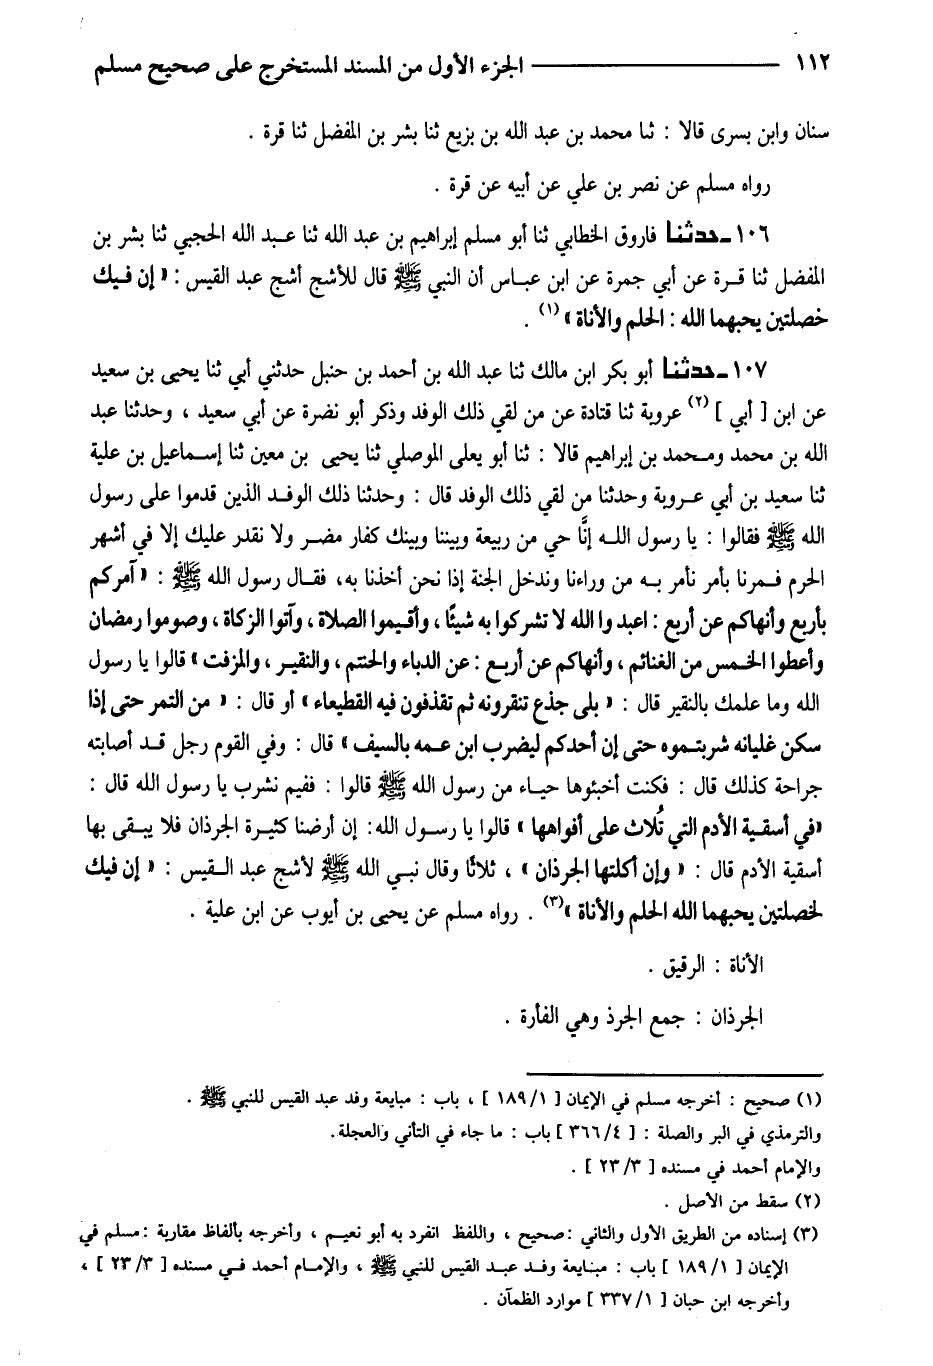 ١١٢ ــــــــــــــــــــ الجزء الأول من المسند المستخرج على صحيح مسلم
سنان وابن يسرى قالا : ثنا محمد بن عبد الله بن بزيع ثنا بشر بن المفضل ثنا قرة .
رواه مسلم عن نصر بن علي عن أبيه عن قرة .
١٠٦ـ حدثنا فاروق الخطابي ثنا أبو مسلم إبراهيم بن عبد الله ثنا عبد الله الحجبي ثنا بشر بن
المفضل ثنا قرة عن أبي جمرة عن ابن عباس أن النبي ﷺ قال للأشج أشج عبد القيس : « إن فيك
خصلتين يحبهما الله : الحلم والأناة » (١) .
١٠٧ـ حدثنا أبو بكر ابن مالك ثنا عبد الله بن أحمد بن حنبل حدثني أبي ثنا يحيى بن سعيد
عن ابن [ أبي ] (٢) عروبة ثنا قتادة عن من لقي ذلك الوفد وذكر أبو نضرة عن أبي سعيد ، وحدثنا عبد
الله بن محمد ومحمد بن إبراهيم قالا : ثنا أبو يعلى الموصلي ثنا يحيى بن معين ثنا إسماعيل بن علية
ثنا سعيد بن أبي عروبة وحدثنا من لقي ذلك الوفد قال : وحدثنا ذلك الوفد الذين قدموا على رسول
الله ﷺ فقالوا : يا رسول الله إنَّا حي من ربيعة وبيننا وبينك كفار مضر ولا نقدر عليك إلا في أشهر
الحرم فمرنا بأمر نأمر به من وراءنا وندخل الجنة إذا نحن أخذنا به، فقال رسول الله ﷺ : « آمركم
بأربع وأنهاكم عن أربع : اعبدوا الله لا تشركوا به شيئًا ، وأقيموا الصلاة ، وآتوا الزكاة ، وصوموا رمضان
وأعطوا الخمس من الغنائم ، وأنهاكم عن أربع : عن الدباء والحنتم ، والنقير ، والمزفت » قالوا يا رسول
الله وما علمك بالنقير قال : « بلى جذع تنقرونه ثم تقذفون فيه القطيعاء » أو قال : « من التمر حتى إذا
سكن غليانه شربتموه حتى إن أحدكم ليضرب ابن عمه بالسيف » قال : وفي القوم رجل قد أصابته
جراحة كذلك قال : فكنت أخبئوها حياء من رسول الله ﷺ قالوا : ففيم نشرب يا رسول الله قال :
«في أسقية الأدم التي تُلاث على أفواهها » قالوا يا رسول الله: إن أرضنا كثيرة الجرذان فلا يبقى بها
أسقية الأدم قال : « وإن أكلتها الجرذان » ، ثلاثًا وقال نبي الله ﷺ لأشج عبد القيس : « إن فيك
لخصلتين يحبهما الله الحلم والأناة »(٣) . رواه مسلم عن يحيى بن أيوب عن ابن علية .
الأناة : الرقيق .
الجرذان : جمع الجرذ وهي الفأرة .
(١) صحيح : أخرجه مسلم في الإيمان [ ١/ ١٨٩ ] ، باب : مبايعة وفد عبد القيس للنبي ﷺ .
والترمذي في البر والصلة : [ ٤/ ٣٦٦ ] باب : ما جاء في التأني والعجلة.
والإمام أحمد في مسنده [ ٣/ ٢٣ ] .
(٢) سقط من الأصل .
(٣) إسناده من الطريق الأول والثاني :صحيح ، واللفظ انفرد به أبو نعيم ، وأخرجه بألفاظ مقاربة :مسلم في
الإيمان [ ١/ ١٨٩ ] باب : مبايعة وفد عبد القيس للنبي ﷺ ، والإمام أحمد في مسنده [ ٣/ ٢٣ ] ،
وأخرجه ابن حبان [ ١/ ٣٣٧ ] موارد الظمآن .